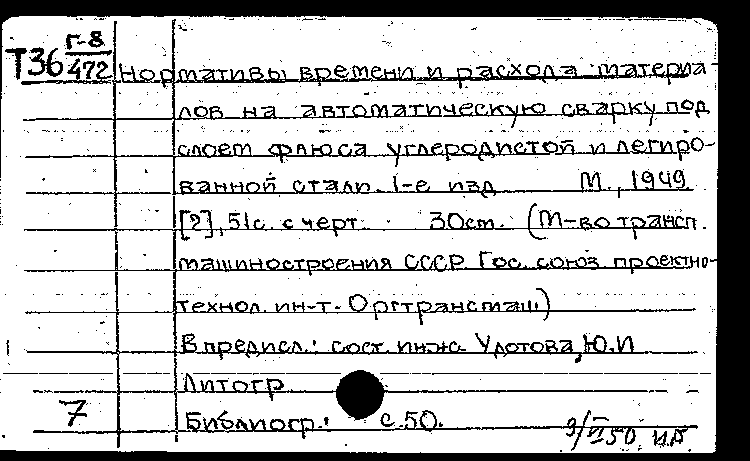 Г-8
Т36 472 Нормативы времени и расхода материа-
лов на автоматическую сварку под
слоем флюса углеродистой и легиро-
ванной стали. 1-е изд М., 1949
[2], 51с. с черт. 30см. (М-во трансп.
машиностроения СССР Гос. союз. проектно-
технол. ин-т. Оргтрансмаш)
В предисл.: сост. инж. Удотова, Ю.И
Литогр
7 Библиогр.: с.50.
9/VI 50.